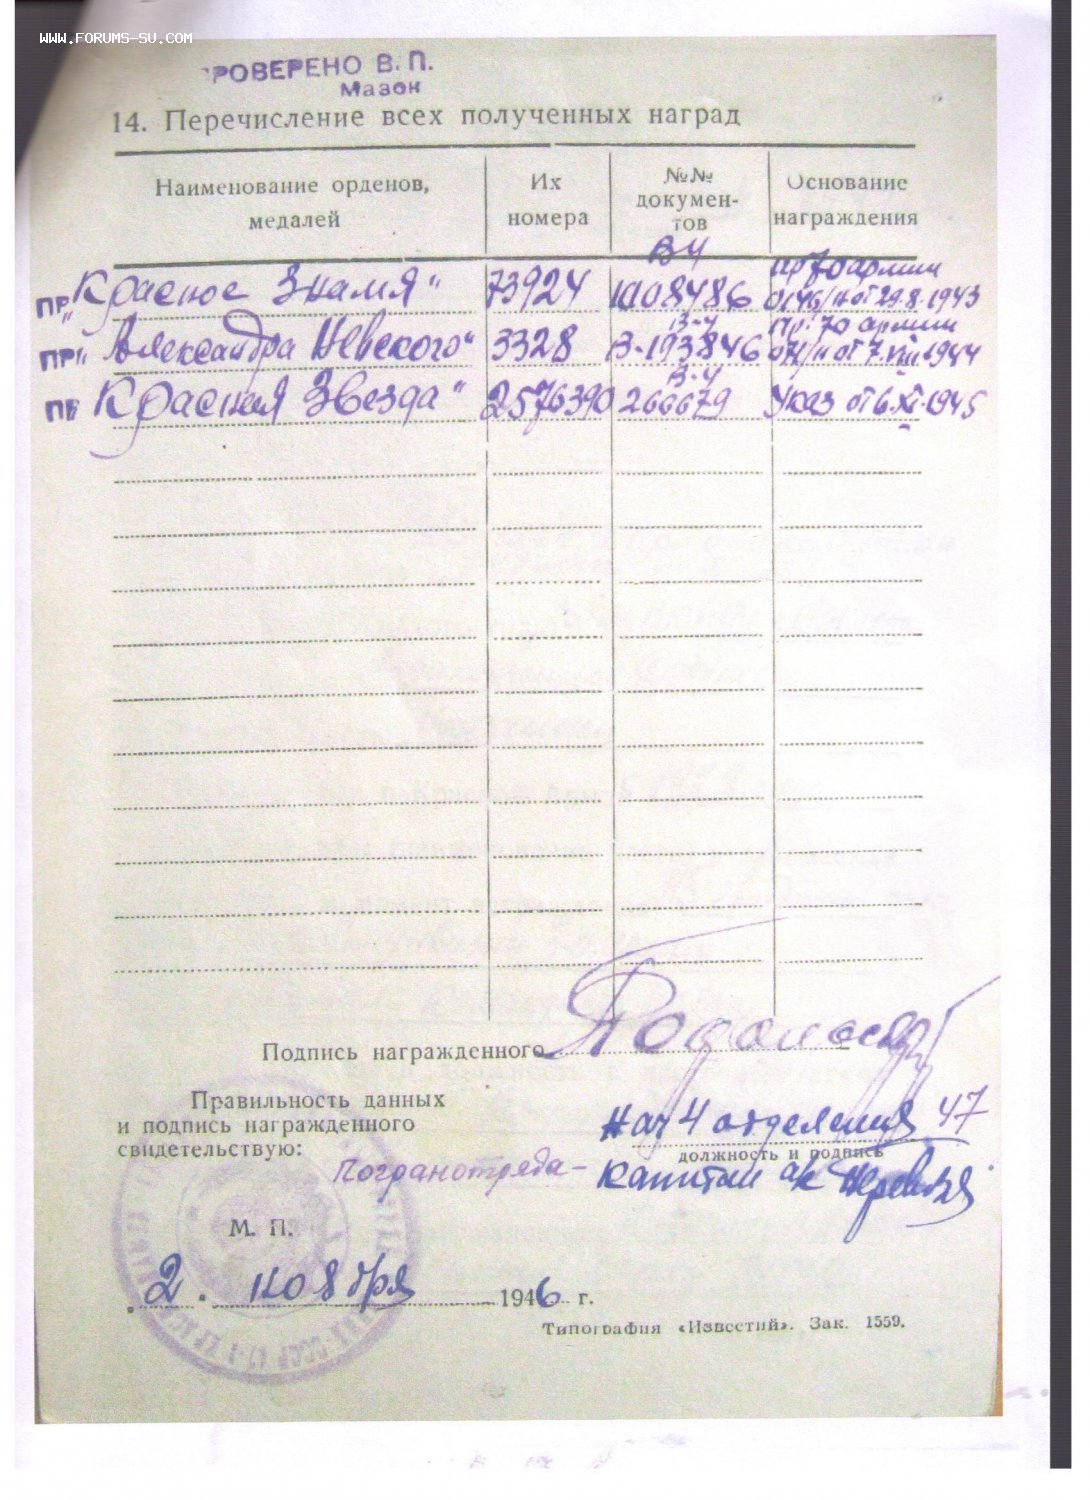 WWW.FORUMS-SU.COM
ПРОВЕРЕНО В. П.
Мазок
14. Перечисление всех полученных наград
Наименование орденов, медалей
Их номера
№№ докумен-тов
Основание награждения
ПР „Красное Знамя“ 73924 В-4 1108486 Пр 70 армии 0146/н от 29.8.1943
ПР „Александра Невского“ 3328 В-4 В-193846 Пр. 70 армии 071/н от 7.VIII.1944
ПР „Красная Звезда“ 2576390 В-4 266679 Указ от 6.XI.1945
Подпись награжденного
Правильность данных
и подпись награжденного
свидетельствую:
Нач 4 отделения 47
должность и подпись
Погранотряда – капитан а/с
М. П.
„2“ ноября 1946 г.
Типография «Известий». Зак. 1559.